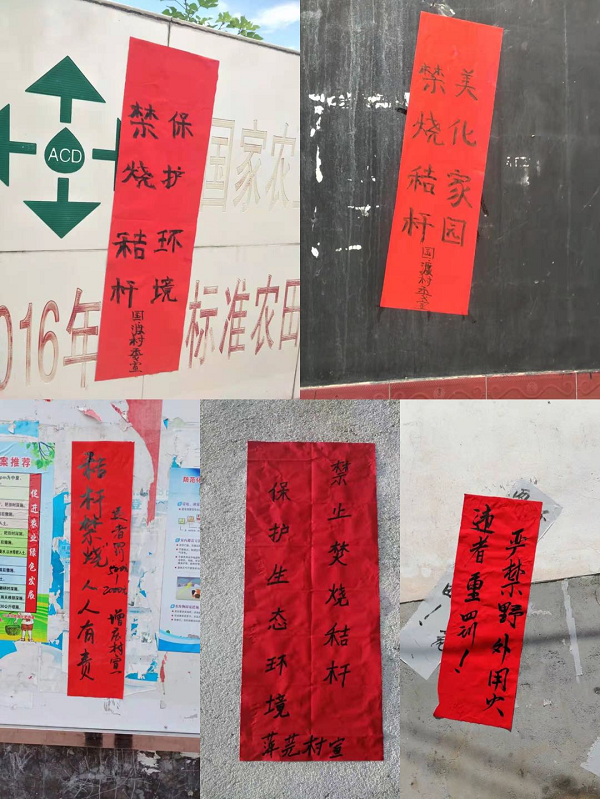 ACD
国家农
016年
标准农田
保护环境
禁烧秸杆
美化家园
禁烧秸杆
案推荐
促进农业绿色发展
秸杆禁烧人人有责
违者罚500
2000
村宣
禁止焚烧秸杆
保护生态环境
村宣
严禁野外用火
违者重罚!